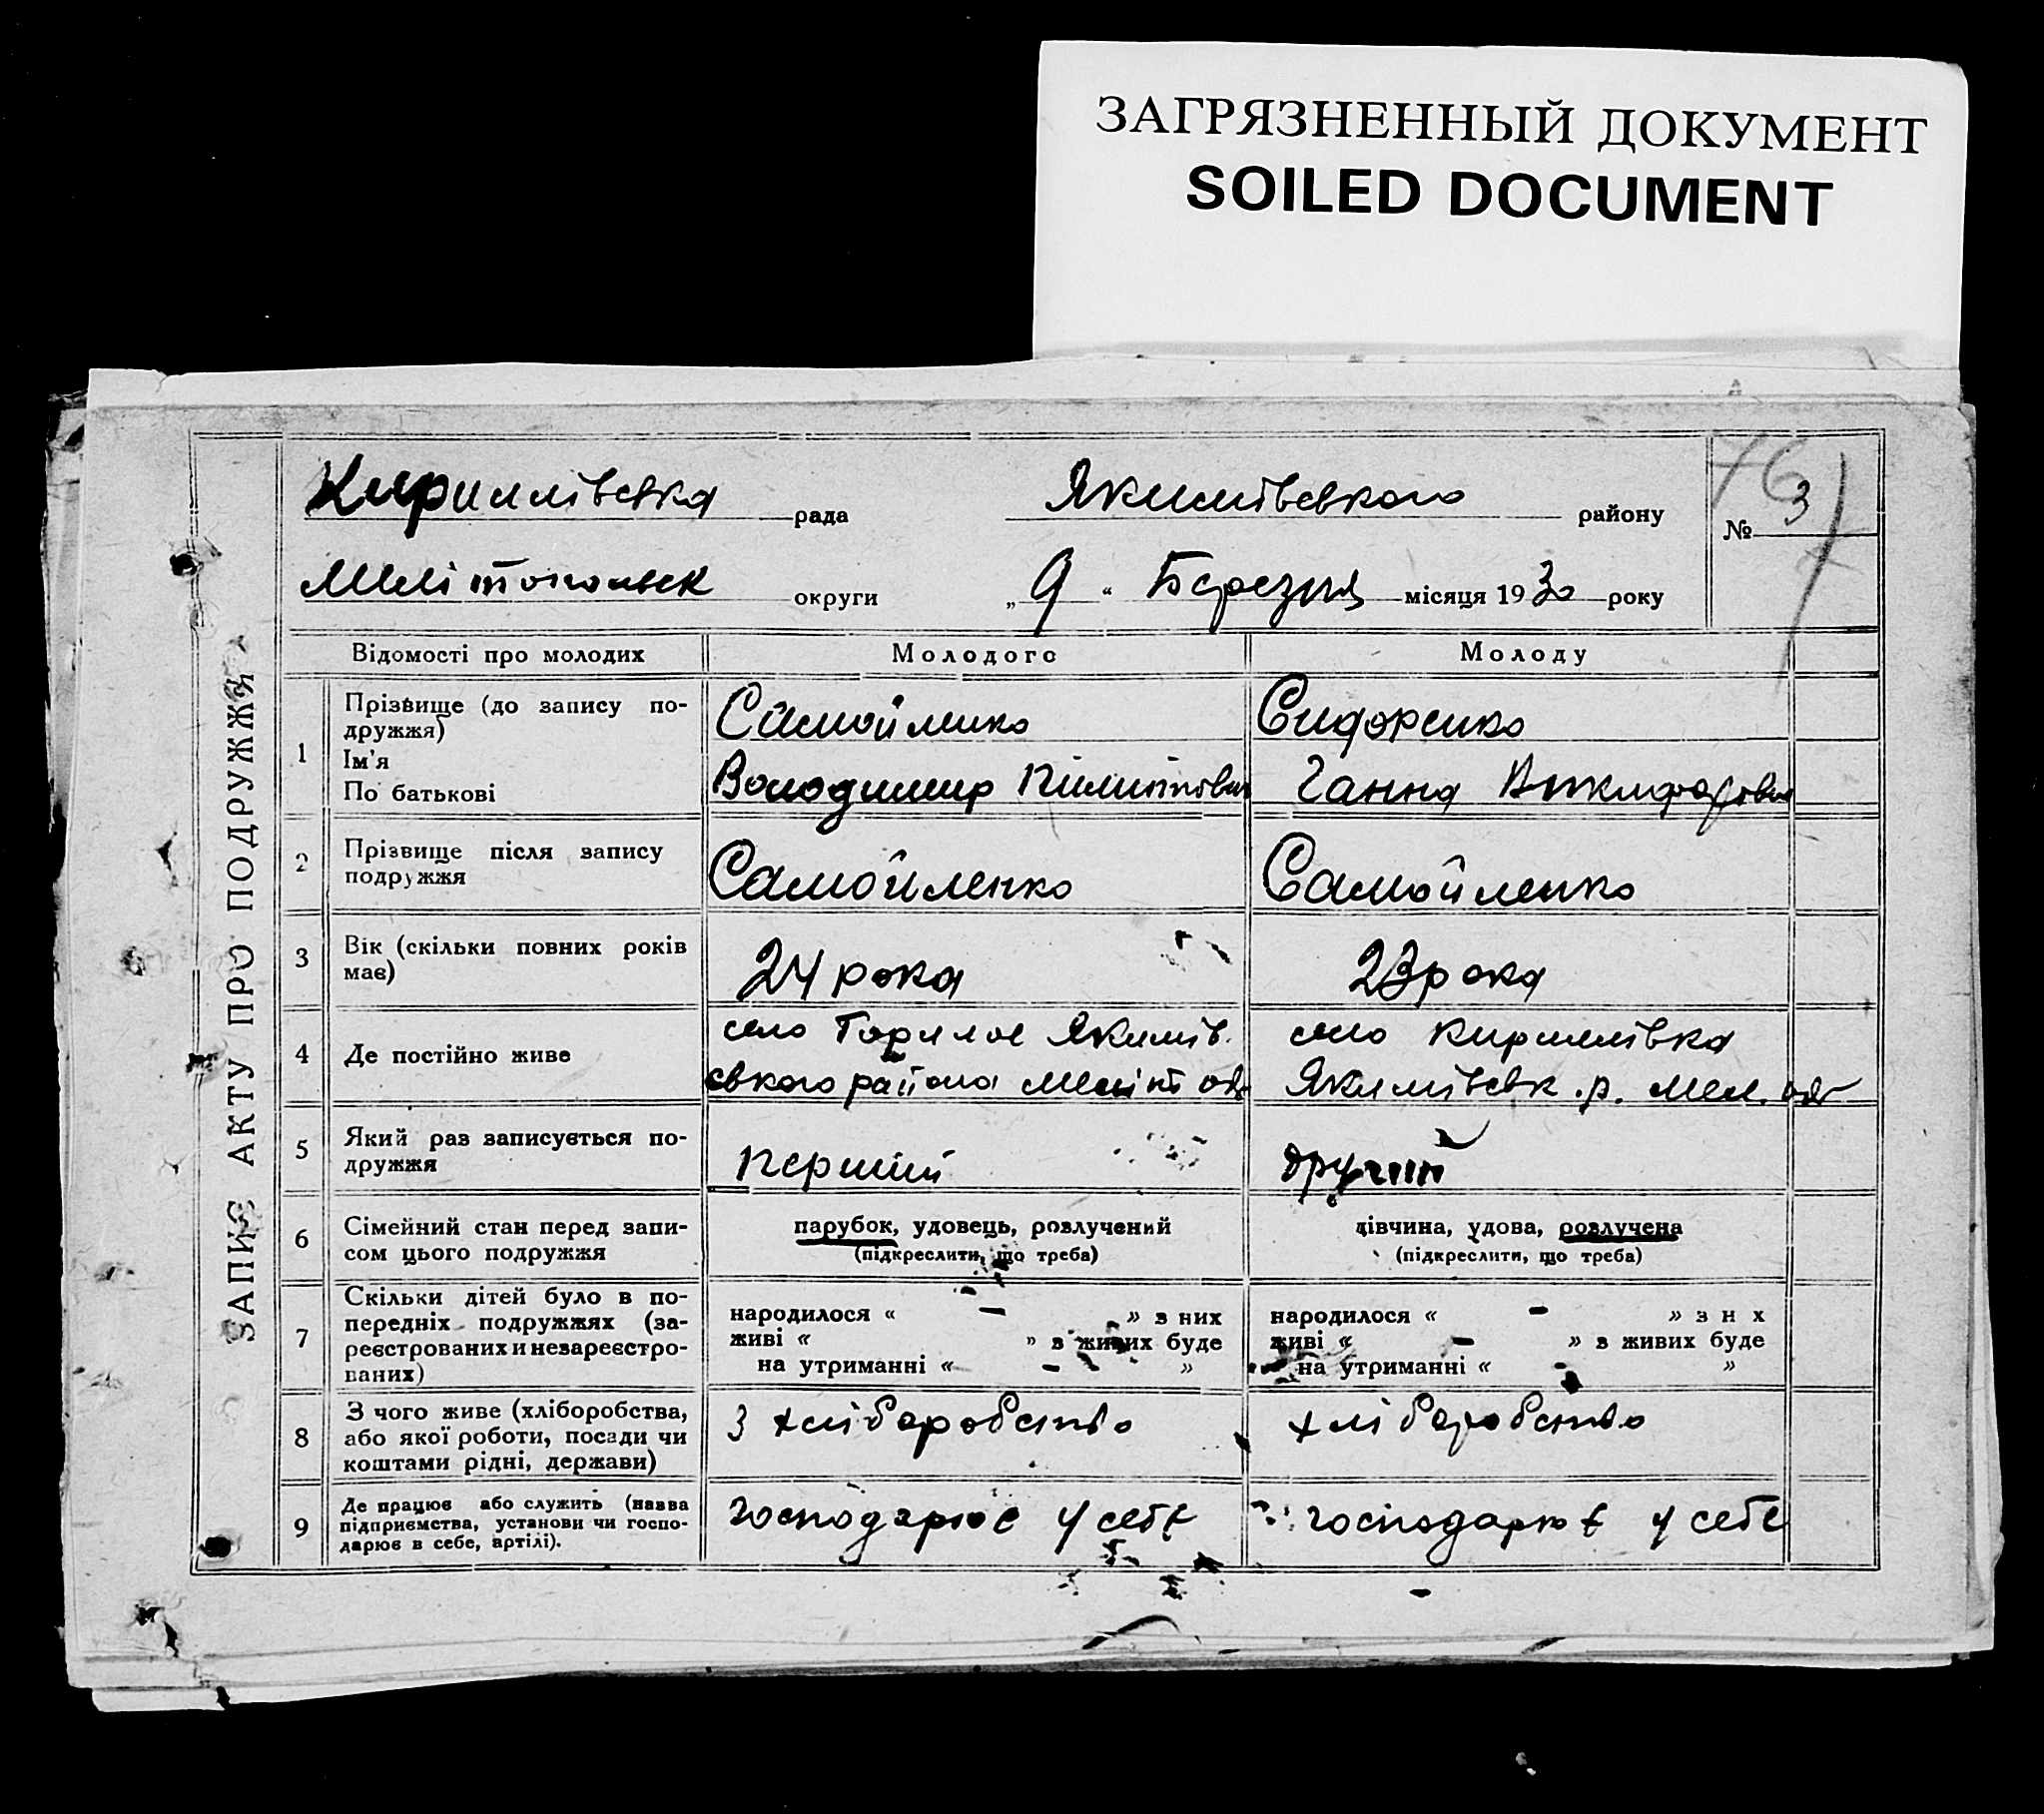 ЗАГРЯЗНЕННЫЙ ДОКУМЕНТ
SOILED DOCUMENT
ЗАПИС АКТУ ПРО ПОДРУЖЖЯ
Кириллівська рада Якимівського району № 3
76
Мелітопольск округи „ 9 “ Березня місяця 1930 року
Відомості про молодих Молодого Молоду
1 Прізвище (до запису по-
дружжя) Самойленко Сидоренко
Ім'я
По батькові Володимир Ганна
2 Прізвище після запису
подружжя Самойленко Самойленко
3 Вік (скільки повних років
має) 24 рока 23 рока
4 Де постійно живе село Горілое Якимів.
ського района Меліт окр
село Кириллівка
Якимівськ. р. Мел. окр
5 Який раз записується по-
дружжя перший другий
6 Сімейний стан перед запи-
сом цього подружжя парубок, удовець, розлучений
(підкреслити, що треба)
дівчина, удова, розлучена
(підкреслити, що треба)
7 Скільки дітей було в по-
передніх подружжях (за-
реєстрованих и незареєстро-
ваних)
народилося « – » з них
живі « » в живих буде
на утриманні « – »
народилося « – » з н х
живі « – » в живих буде
на утриманні « – »
8 З чого живе (хліборобства,
або якої роботи, посади чи
коштами рідні, держави) З хліборобство хліборобство
9 Де працює або служить (назва
підприємства, установи чи госпо-
дарює в себе, артілі). господарює у себе господарює у себе